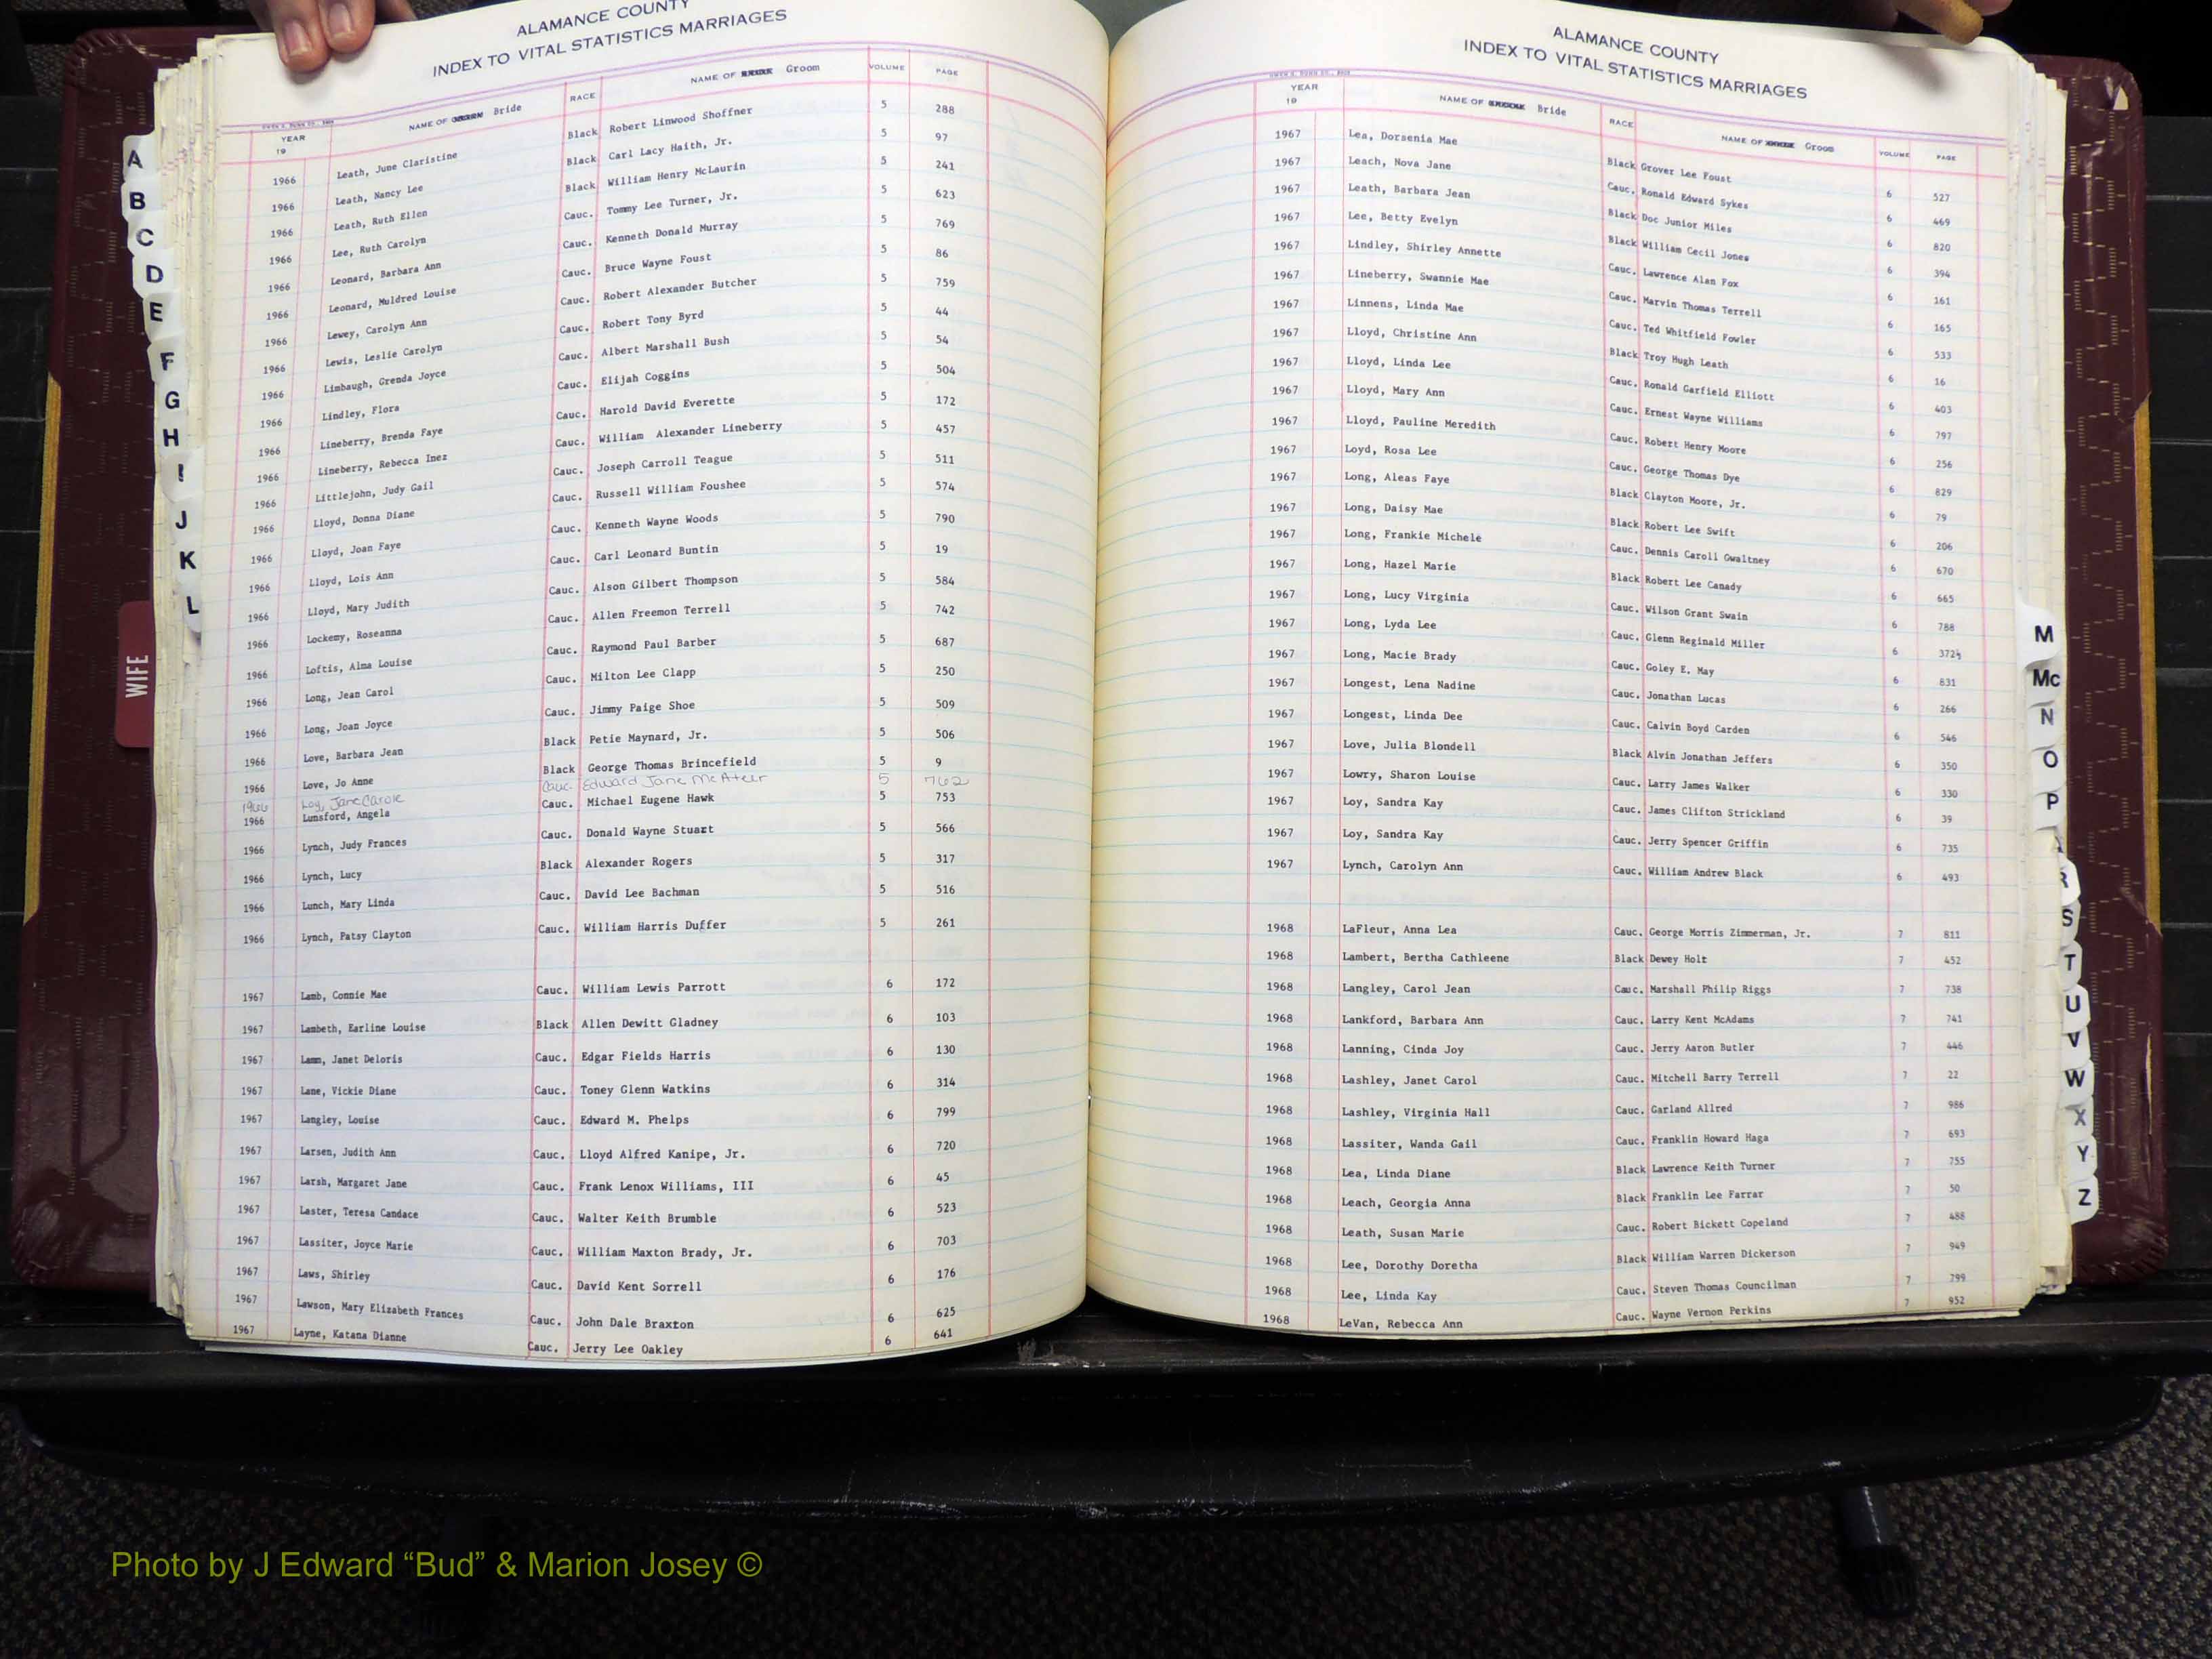 ALAMANCE COUNTY
INDEX TO VITAL STATISTICS MARRIAGES
YEAR 19 NAME OF Bride RACE NAME OF Groom VOLUME PAGE
1966 Leath, June Claristine Black Robert Linwood Shoffner 5 288
1966 Leath, Nancy Lee Black Carl Lacy Haith, Jr. 5 97
1966 Leath, Ruth Ellen Black William Henry McLaurin 5 241
1966 Lee, Ruth Carolyn Cauc. Tommy Lee Turner, Jr. 5 623
1966 Leonard, Barbara Ann Cauc. Kenneth Donald Murray 5 769
1966 Leonard, Muldred Louise Cauc. Bruce Wayne Foust 5 86
1966 Lewey, Carolyn Ann Cauc. Robert Alexander Butcher 5 759
1966 Lewis, Leslie Carolyn Cauc. Robert Tony Byrd 5 44
1966 Limbaugh, Grenda Joyce Cauc. Albert Marshall Bush 5 54
1966 Lindley, Flora Cauc. Elijah Coggins 5 504
1966 Lineberry, Brenda Faye Cauc. Harold David Everette 5 172
1966 Lineberry, Rebecca Inez Cauc. William Alexander Lineberry 5 457
1966 Littlejohn, Judy Gail Cauc. Joseph Carroll Teague 5 511
1966 Lloyd, Donna Diane Cauc. Russell William Foushee 5 574
1966 Lloyd, Joan Faye Cauc. Kenneth Wayne Woods 5 790
1966 Lloyd, Lois Ann Cauc. Carl Leonard Buntin 5 19
1966 Lloyd, Mary Judith Cauc. Alson Gilbert Thompson 5 584
1966 Lockemy, Roseanna Cauc. Allen Freemon Terrell 5 742
1966 Loftis, Alma Louise Cauc. Raymond Paul Barber 5 687
1966 Long, Jean Carol Cauc. Milton Lee Clapp 5 250
1966 Long, Joan Joyce Cauc. Jimmy Paige Shoe 5 509
1966 Love, Barbara Jean Black Petie Maynard, Jr. 5 506
1966 Love, Jo Anne Black George Thomas Brincefield 5 9
1966 Loy, Jane Carole Cauc. Edward Jane McAteer 5 762
1966 Lunsford, Angela Cauc. Michael Eugene Hawk 5 753
1966 Lynch, Judy Frances Cauc. Donald Wayne Stuart 5 566
1966 Lynch, Lucy Black Alexander Rogers 5 317
1966 Lunch, Mary Linda Cauc. David Lee Bachman 5 516
1966 Lynch, Patsy Clayton Cauc. William Harris Duffer 5 261
1967 Lamb, Connie Mae Cauc. William Lewis Parrott 6 172
1967 Lambeth, Earline Louise Black Allen Dewitt Gladney 6 103
1967 Lamm, Janet Deloris Cauc. Edgar Fields Harris 6 130
1967 Lane, Vickie Diane Cauc. Toney Glenn Watkins 6 314
1967 Langley, Louise Cauc. Edward M. Phelps 6 799
1967 Larsen, Judith Ann Cauc. Lloyd Alfred Kanipe, Jr. 6 720
1967 Larsh, Margaret Jane Cauc. Frank Lenox Williams, III 6 45
1967 Laster, Teresa Candace Cauc. Walter Keith Brumble 6 523
1967 Lassiter, Joyce Marie Cauc. William Maxton Brady, Jr. 6 703
1967 Laws, Shirley Cauc. David Kent Sorrell 6 176
1967 Lawson, Mary Elizabeth Frances Cauc. John Dale Braxton 6 625
1967 Layne, Katana Dianne Cauc. Jerry Lee Oakley 6 641
A
B
C
D
E
F
G
H
I
J
K
L
WIFE
ALAMANCE COUNTY
INDEX TO VITAL STATISTICS MARRIAGES
YEAR 19 NAME OF Bride RACE NAME OF Groom VOLUME PAGE
1967 Lea, Dorsenia Mae Black Grover Lee Foust 6 527
1967 Leach, Nova Jane Cauc. Ronald Edward Sykes 6 469
1967 Leath, Barbara Jean Black Doc Junior Miles 6 820
1967 Lee, Betty Evelyn Black William Cecil Jones 6 394
1967 Lindley, Shirley Annette Cauc. Lawrence Alan Fox 6 161
1967 Lineberry, Swannie Mae Cauc. Marvin Thomas Terrell 6 165
1967 Linnens, Linda Mae Cauc. Ted Whitfield Fowler 6 533
1967 Lloyd, Christine Ann Black Troy Hugh Leath 6 16
1967 Lloyd, Linda Lee Cauc. Ronald Garfield Elliott 6 403
1967 Lloyd, Mary Ann Cauc. Ernest Wayne Williams 6 797
1967 Lloyd, Pauline Meredith Cauc. Robert Henry Moore 6 256
1967 Loyd, Rosa Lee Cauc. George Thomas Dye 6 829
1967 Long, Aleas Faye Black Clayton Moore, Jr. 6 79
1967 Long, Daisy Mae Black Robert Lee Swift 6 206
1967 Long, Frankie Michele Cauc. Dennis Caroll Gwaltney 6 670
1967 Long, Hazel Marie Black Robert Lee Canady 6 665
1967 Long, Lucy Virginia Cauc. Wilson Grant Swain 6 788
1967 Long, Lyda Lee Cauc. Glenn Reginald Miller 6 372½
1967 Long, Macie Brady Cauc. Goley E. May 6 831
1967 Longest, Lena Nadine Cauc. Jonathan Lucas 6 266
1967 Longest, Linda Dee Cauc. Calvin Boyd Carden 6 546
1967 Love, Julia Blondell Black Alvin Jonathan Jeffers 6 350
1967 Lowry, Sharon Louise Cauc. Larry James Walker 6 330
1967 Loy, Sandra Kay Cauc. James Clifton Strickland 6 39
1967 Loy, Sandra Kay Cauc. Jerry Spencer Griffin 6 735
1967 Lynch, Carolyn Ann Cauc. William Andrew Black 6 493
1968 LaFleur, Anna Lea Cauc. George Morris Zimmerman, Jr. 7 811
1968 Lambert, Bertha Cathleene Black Dewey Holt 7 452
1968 Langley, Carol Jean Cauc. Marshall Philip Riggs 7 738
1968 Lankford, Barbara Ann Cauc. Larry Kent McAdams 7 741
1968 Lanning, Cinda Joy Cauc. Jerry Aaron Butler 7 446
1968 Lashley, Janet Carol Cauc. Mitchell Barry Terrell 7 22
1968 Lashley, Virginia Hall Cauc. Garland Allred 7 986
1968 Lassiter, Wanda Gail Cauc. Franklin Howard Haga 7 693
1968 Lea, Linda Diane Black Lawrence Keith Turner 7 755
1968 Leach, Georgia Anna Black Franklin Lee Farrar 7 50
1968 Leath, Susan Marie Cauc. Robert Bickett Copeland 7 488
1968 Lee, Dorothy Doretha Black William Warren Dickerson 7 949
1968 Lee, Linda Kay Cauc. Steven Thomas Councilman 7 799
1968 LeVan, Rebecca Ann Cauc. Wayne Vernon Perkins 7 952
M
Mc
N
O
P
R
S
T
U
V
W
X
Y
Z
Photo by J Edward “Bud” & Marion Josey ©